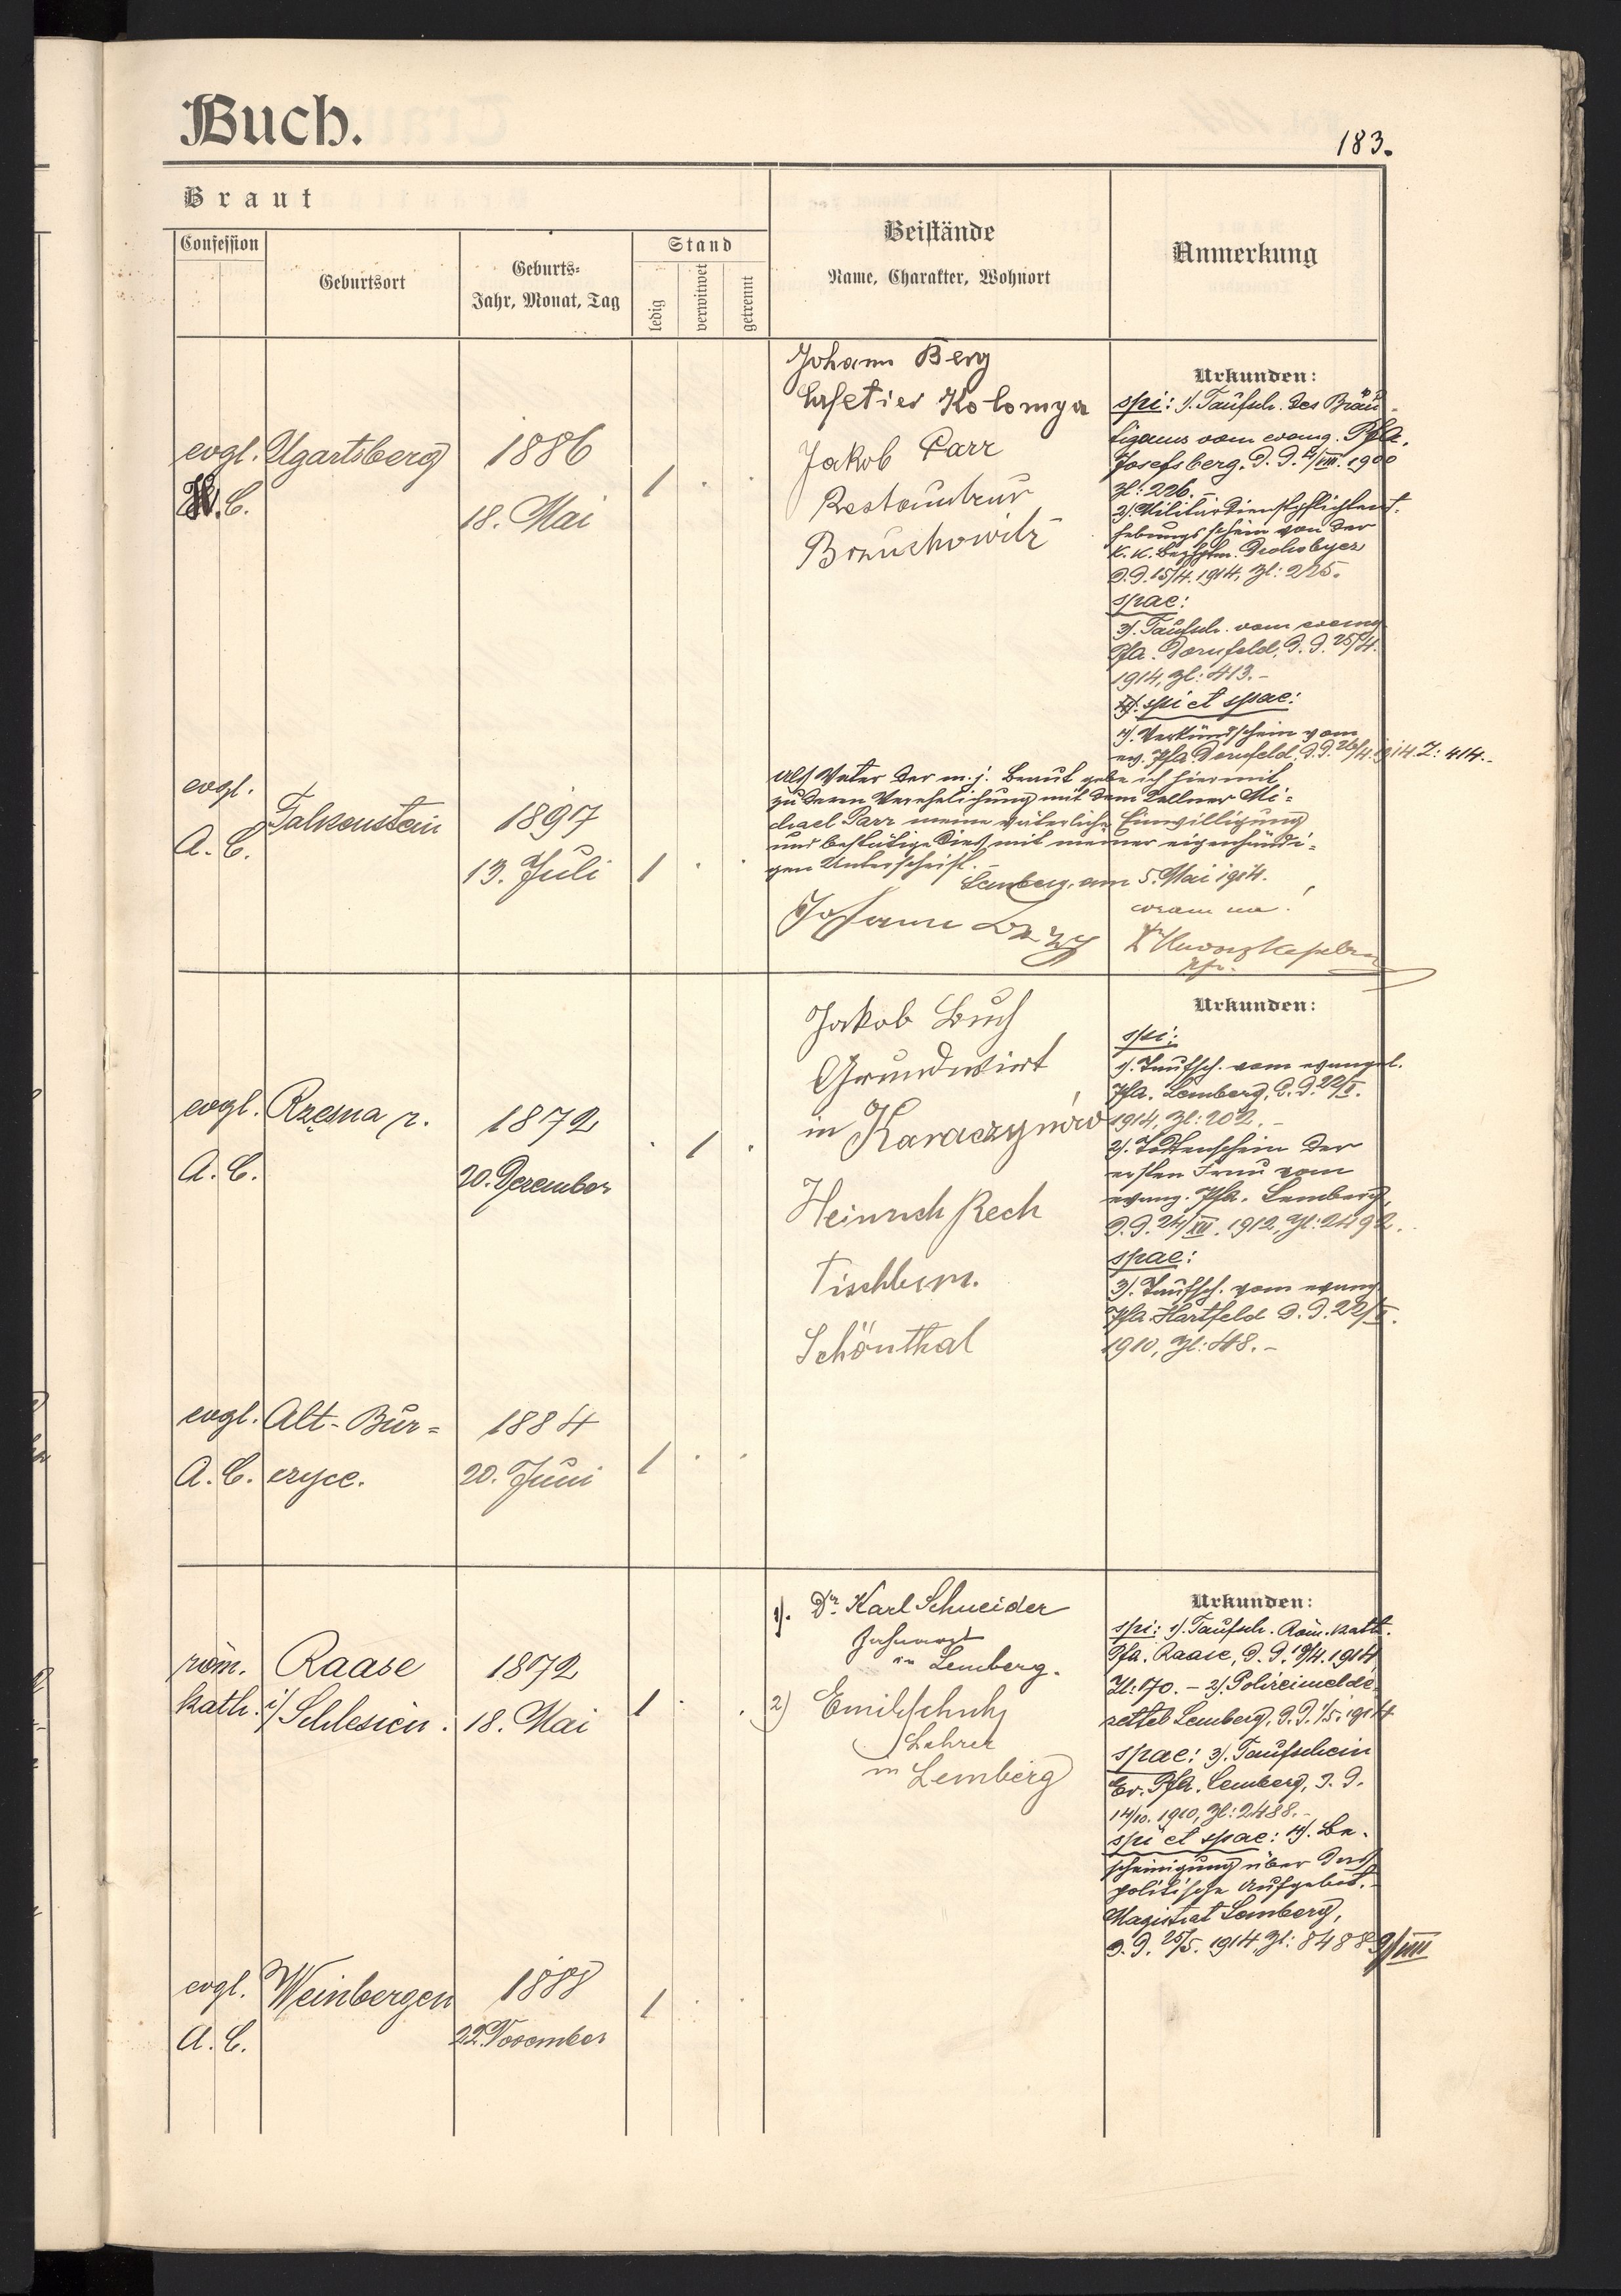 Buch.
183.
Braut
Confession
Geburtsort
Geburts-
Jahr, Monat, Tag
Stand
ledig
verwitwet
getrennt
Beistände
Name, Charakter, Wohnort
Anmerkung
evgl. Ugartsberg 1886
C.
18. Mai
1 . .
Johann Berg
Cafetier Kolomya
Jakob Parr
Restaurateur
Brzuchowitz
Urkunden:
spi: 1). Taufsch. des Bräu-
tigams vom evang. Pfa.
Josefsberg, d. d. /VIII. 1900
Zl: 226. –
2). Militärdienstpflichtent-
hebungsschein von der
k. k. Bezhptm. Drohobycz
d. d. 15/4. 1914, Zl: 225.
spae:
3). Taufsch. vom evang.
Pfa. Dornfeld, d. d. 25/4.
1914, Zl: 413. –
spi et spae:
4). Verkündschein vom
ev. Pfa. Dornfeld, d. d. 26/4. 1914. Z: 414. –
evgl.
A. C.
Falkenstein 1897
13. Juli
1 . .
Als Vater der m. j. Braut gebe ich hiermit
zu deren Verehelichung mit dem Kellner Mi-
chael Parr meine väterliche Einwilligung
und bestätige dies mit meiner eigenhändi-
gen Unterschrift. –
Lemberg, am 5. Mai 1914.
Johann Berg
coram me!
evgl. Rzęsna r. 1872
A. C.
20. Dezember
. 1 .
Jakob Buch
Grundwirt
in Karaczynów
Heinrich Rech
Tischlerm.
Schönthal
Urkunden:
spi:
1). Taufsch. vom evangel.
Pfa. Lemberg, d. d. 22/V.
1914, Zl: 202. –
2). Todtenschein der
ersten Frau vom
evang. Pfa. Lemberg,
d. d. 24/XII. 1912, Zl: 2492.
spae:
3). Taufsch. vom evang.
Pfa. Hartfeld d. d. 22/V.
1910, Zl: 48. –
evgl. Alt-Bur= 1884
A. C. czyce. 20. Juni
1 . .
röm. Raase 1872
kath. i/Schlesien. 18. Mai
1 . .
1). Dr. Karl Schneider
Zahnarzt
in Lemberg.
2) Emil Schuh
Lehrer
in Lemberg
Urkunden:
spi: 1). Taufsch. Röm. kath.
Pfa. Raase, d. d. /4. 1914
Zl: 170. – 2). Polizeimelde-
zettel Lemberg, d. d. 1/5. 1914
spae: 3). Taufschein
Ev. Pfa. Lemberg, d. d.
14/10. 1910, Zl: 2488. –
spi et spae: 4). Be-
scheinigung über das
politische Aufgebot. –
Magistrat Lemberg,
d. d. 25/5. 1914, Zl: 84889/VIII
evgl. Weinbergen 1888
A. C. 22. November
1 . .